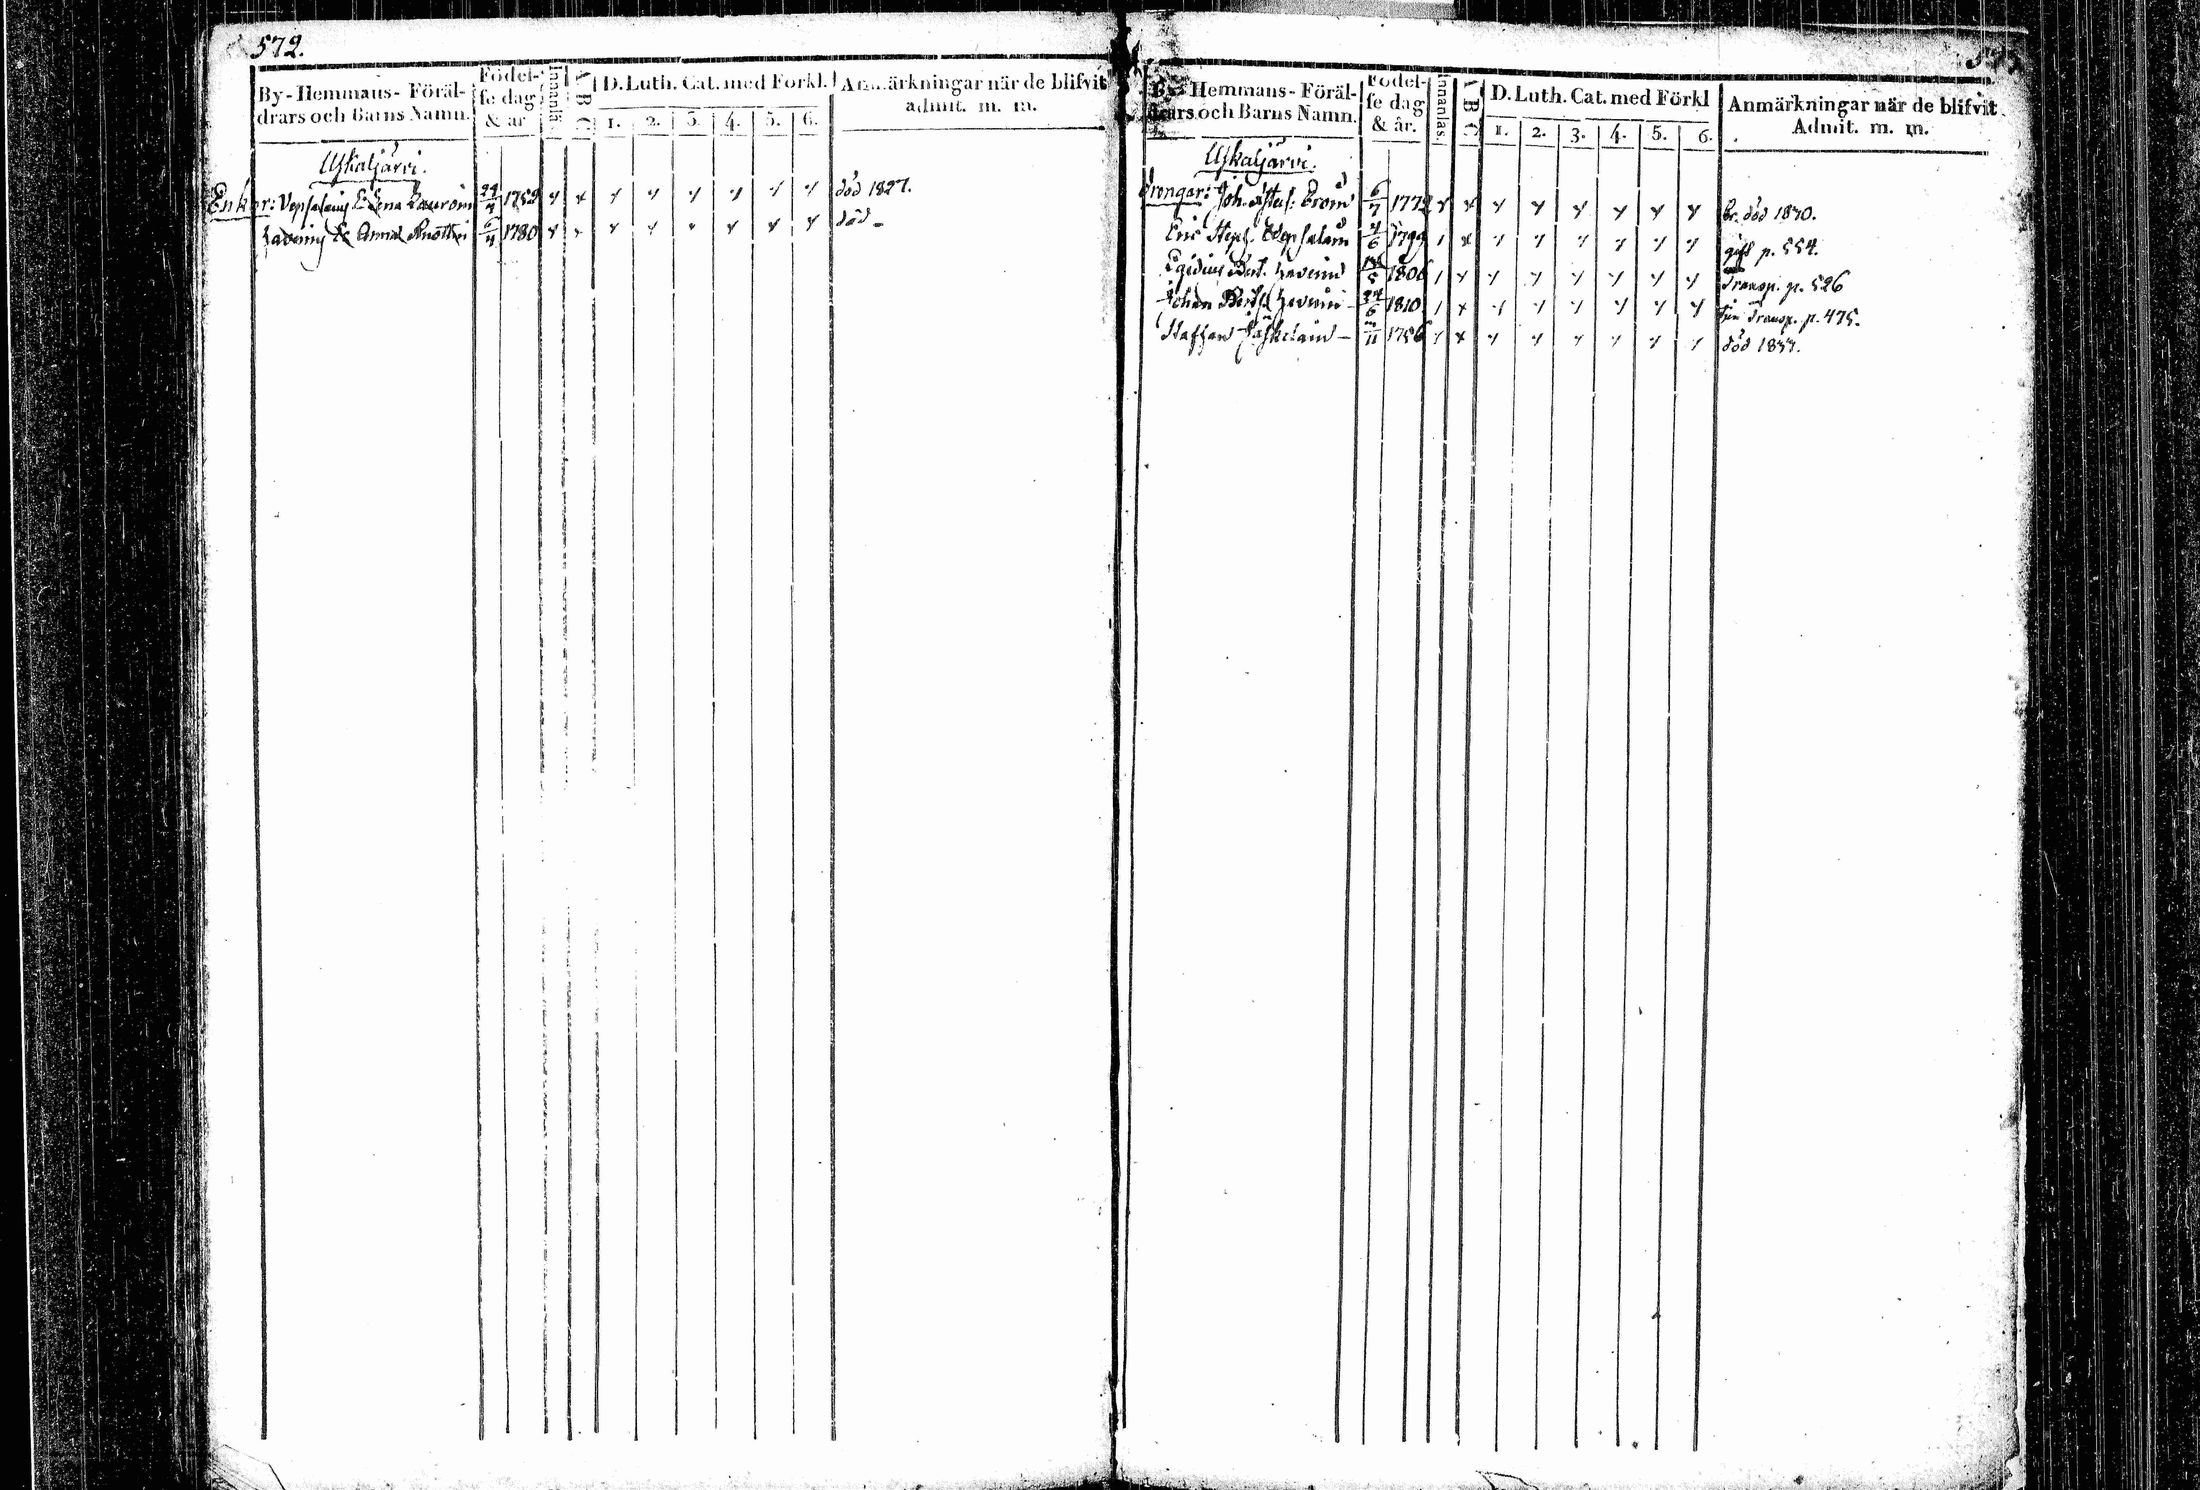 572.
By-Hemmans-Föräl-
drars och Barns Namn.
Födel-
se dag
& år
Innanläs.
A B C
D. Luth. Cat. med Förkl.
1. 2. 3. 4. 5. 6.
Anmärkningar när de blifvit
admit. m. m.
Uskaljärvi.
Enkor: Vepsalains E. Lena Lauroin 24/4 1752 död 1827.
E. Anna 6/11 1780 död -
By-Hemmans-Föräl-
drars och Barns Namn.
Födel-
se dag
& år.
Innanläs.
A B C
D. Luth. Cat. med Förkl
1. 2. 3. 4. 5. 6.
Anmärkningar när de blifvit
Admit. m. m.
Uskaljärvi.
Drengar: Joh. 6/7 1772 död 1830.
Eric Steph. Vepsalain 4/6 1799 gift p. 554.
Egidius 1806 Transp. p. 526
Johan 24/6 1810 Transp. p. 475.
Staffan 11 1756 död 1837.